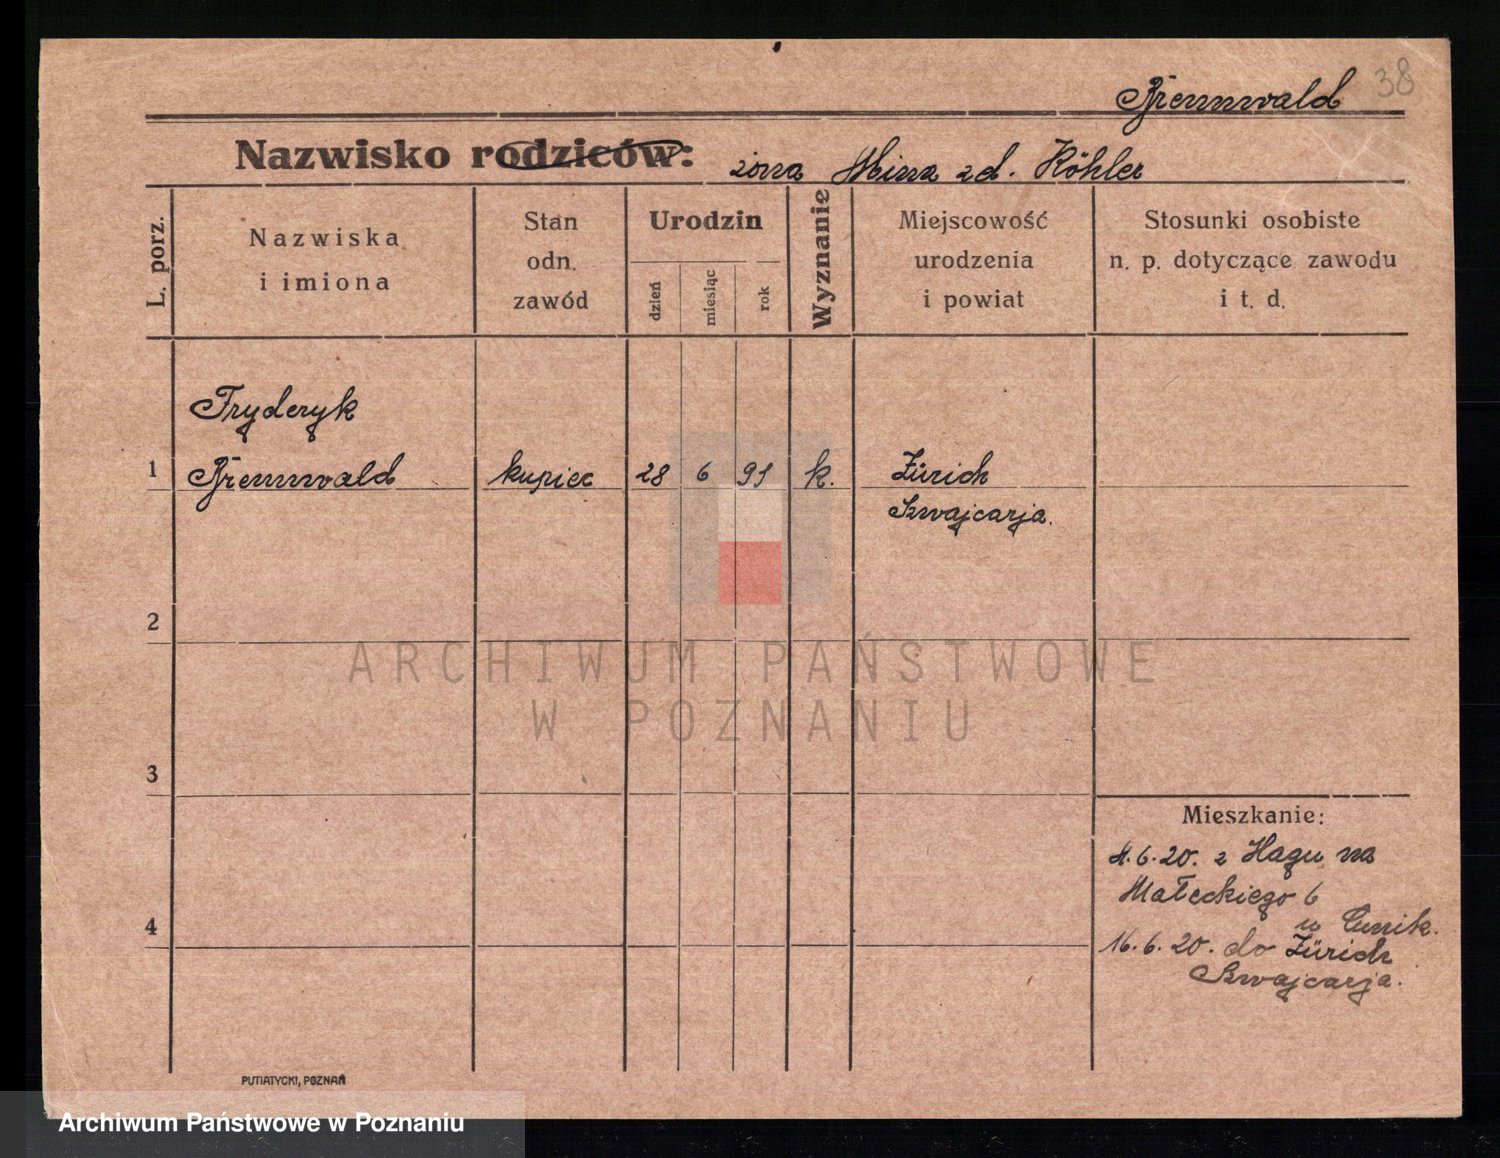 38
Brennwald
Nazwisko rodziców:
żona Mina zd. Köhler
L. porz.
Nazwiska
i imiona
Stan
odn.
zawód
Urodzin
dzień
miesiąc
rok
Wyznanie
Miejscowość
urodzenia
i powiat
Stosunki osobiste
n. p. dotyczące zawodu
i t. d.
Fryderyk
1 Brennwald kupiec 28 6 91 k. Zürich
Szwajcarja.
2
ARCHIWUM PAŃSTWOWE
W POZNANIU
3
4
Mieszkanie:
6.20. z Hagu na
Małeckiego 6
u
16.6.20. do Zürich
Szwajcarja.
PUTIATYCKI, POZNAŃ
Archiwum Państwowe w Poznaniu